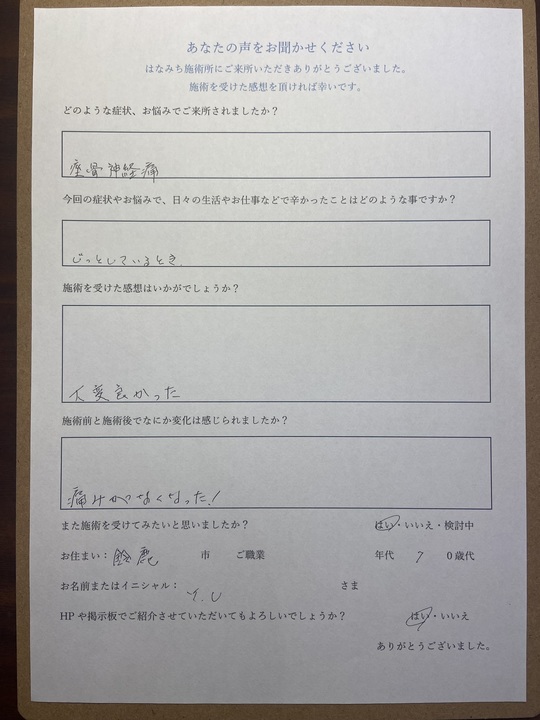 あなたの声をお聞かせください
はなみち施術所にご来所いただきありがとうございました。
施術を受けた感想を頂ければ幸いです。
どのような症状、お悩みでご来所されましたか？
座骨神経痛
今回の症状やお悩みで、日々の生活やお仕事などで辛かったことはどのような事ですか？
じっとしているとき.
施術を受けた感想はいかがでしょうか？
大変良かった
施術前と施術後でなにか変化は感じられましたか？
痛みがなくなった！
また施術を受けてみたいと思いましたか？ はい・いいえ・検討中
お住まい： 鈴鹿 市 ご職業 年代 7 0歳代
お名前またはイニシャル： Y.U さま
HPや掲示板でご紹介させていただいてもよろしいでしょうか？ はい・いいえ
ありがとうございました。